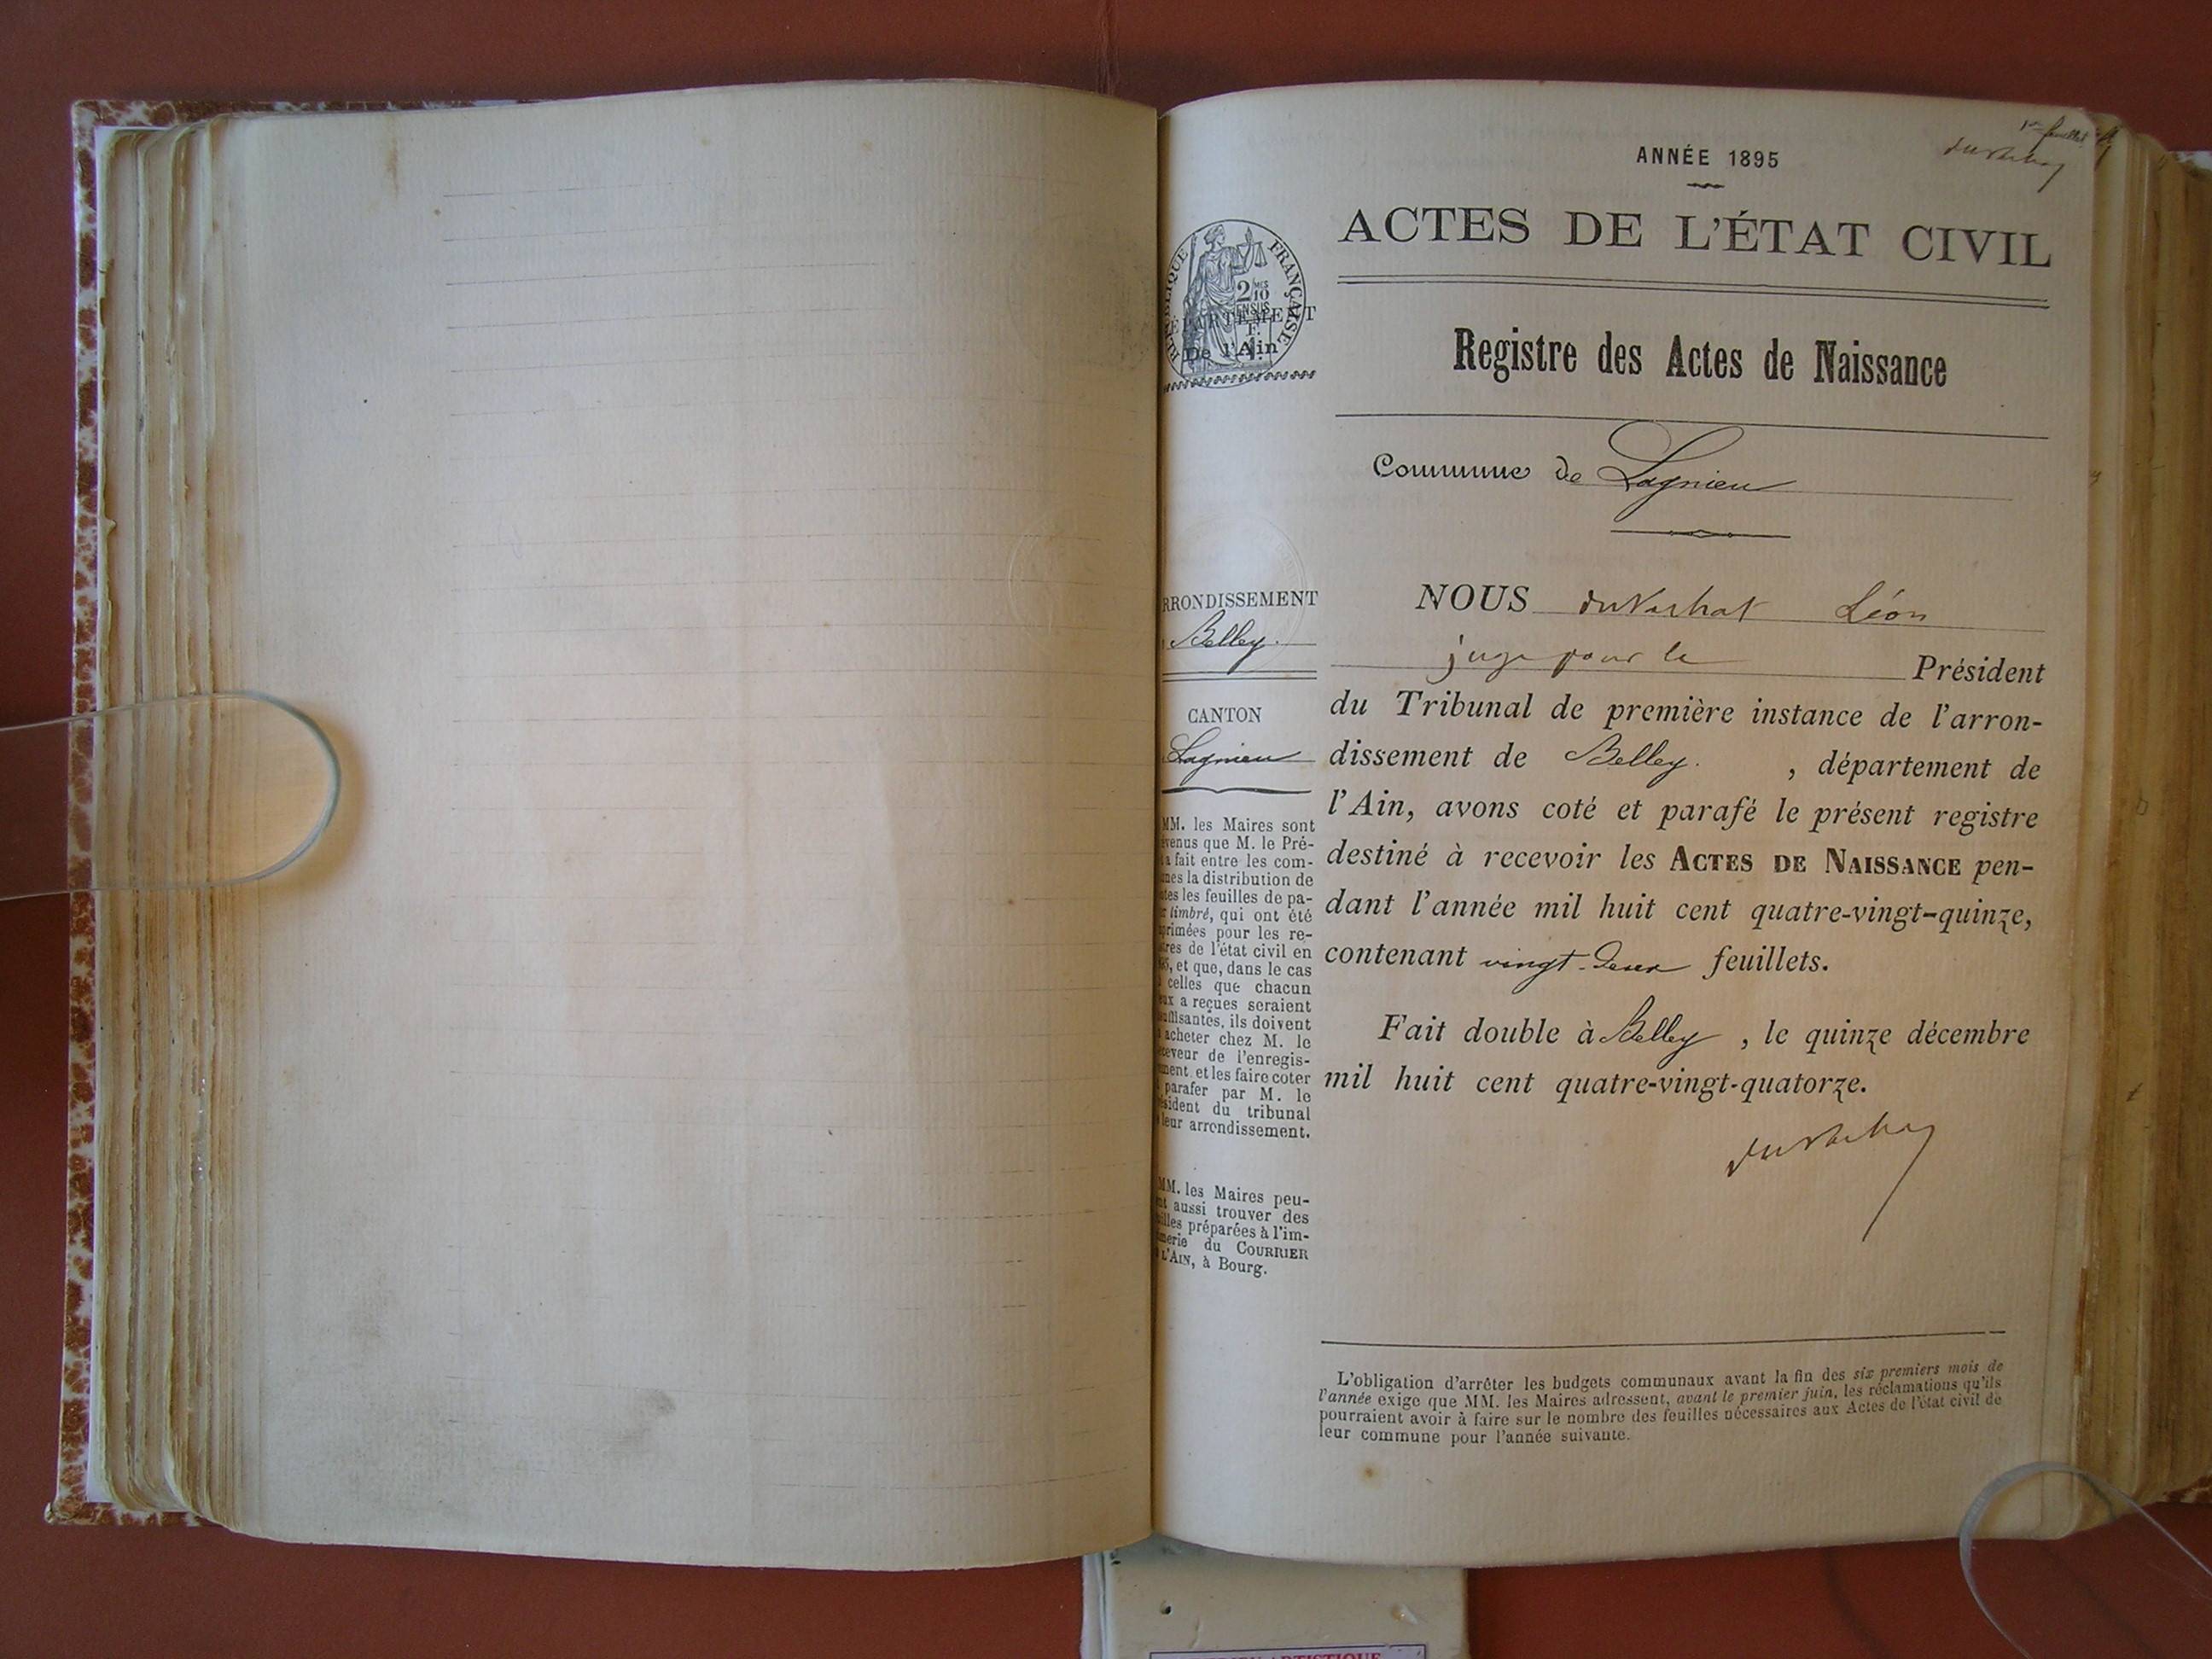 1er feuillet
ANNÉE 1895
ACTES DE L'ÉTAT CIVIL
RÉPUBLIQUE FRANÇAISE
2 MES
10
EN SUS
DÉPARTEMENT
De l'Ain
Registre des Actes de Naissance
Commune de Lagnieu
RRONDISSEMENT
Belley.
CANTON
Lagnieu
MM. les Maires sont
évenus que M. le Pré-
a fait entre les com-
nes la distribution de
tes les feuilles de pa-
r timbré, qui ont été
primées pour les re-
res de l'état civil en
95, et que, dans le cas
celles que chacun
ux a reçues seraient
uffisantes, ils doivent
acheter chez M. le
ceveur de l'enregis-
ment et les faire coter
parafer par M. le
sident du tribunal
leur arrondissement.
MM. les Maires peu-
nt aussi trouver des
illes préparées à l'im-
merie du COURRIER
L'AIN, à Bourg.
NOUS Léon
juge pour le Président
du Tribunal de première instance de l'arron-
dissement de Belley. , département de
l'Ain, avons coté et parafé le présent registre
destiné à recevoir les ACTES DE NAISSANCE pen-
dant l'année mil huit cent quatre-vingt-quinze,
contenant vingt-deux feuillets.
Fait double à Belley , le quinze décembre
mil huit cent quatre-vingt-quatorze.
L'obligation d'arrêter les budgets communaux avant la fin des six premiers mois de
l'année exige que MM. les Maires adressent, avant le premier juin, les réclamations qu'ils
pourraient avoir à faire sur le nombre des feuilles nécessaires aux Actes de l'état civil de
leur commune pour l'année suivante.
ARTISTIQUE